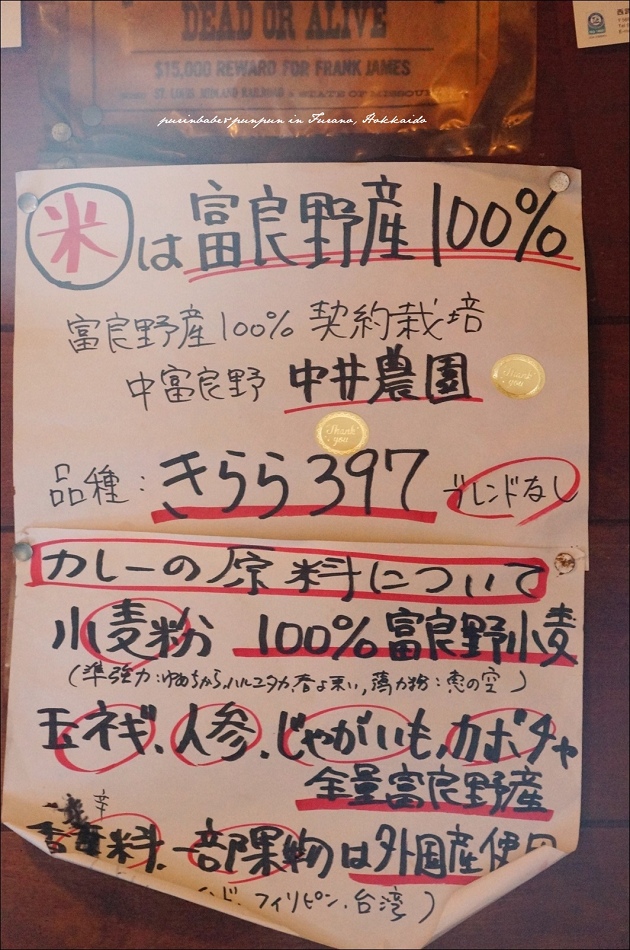 DEAD OR ALIVE
$15,000 REWARD FOR FRANK JAMES
ST. LOUIS MIDLAND RAILROAD & STATE OF MISSOURI
purinbaber punpun in Furano, Hokkaido
米は富良野産100%
富良野産100% 契約栽培
中富良野 中井農園
Thank you
Thank you
品種:きらら397 ブレンドなし
カレーの原料について
小麦粉 100%富良野小麦
(準強力:ゆめちから,ハルユタカ,春よ来い,薄力粉:恵の空)
玉ネギ、人参、じゃがいも、カボチャ
全量富良野産
香辛料、一部果物は外国産使用
ド、フィリピン、台湾)